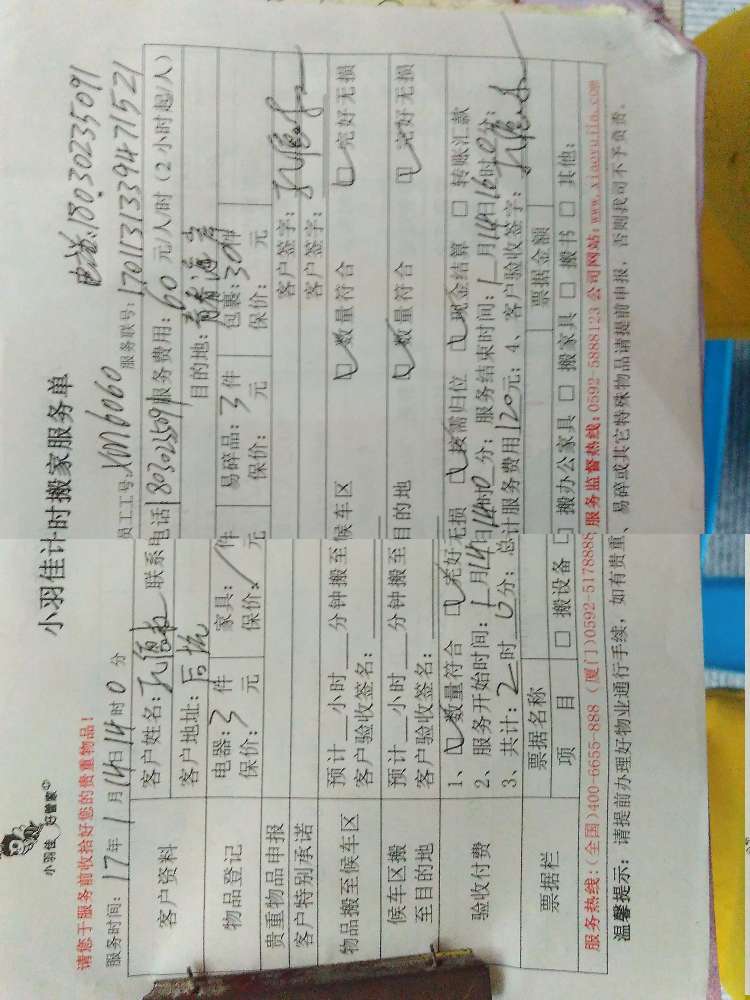 小羽佳
好管家
小羽佳计时搬家服务单
电话:18030235091
请您于服务前收拾好您的贵重物品!
服务时间: 17年 1 月 14日 14时 0 分
员工工号: 服务联号: 1701131339471521
客户资料
客户姓名: 联系电话 服务费用: 60 元/人/时 (2 小时起/人)
客户地址: 目的地:
物品登记
电器: 3 件 家具: / 件 易碎品: 3 件 包裹: 30件
保价: 元 保价: 元 保价: 元 保价: 元
贵重物品申报 客户签字:
客户特别承诺 客户签字:
物品搬至候车区
预计__小时__分钟搬至候车区 数量符合 完好无损
客户验收签名:
候车区搬至目的地
预计__小时__分钟搬至目的地 数量符合 完好无损
客户验收签名:
验收付费
1、 数量符合 完好无损 按需归位 现金结算 转账汇款
2、服务开始时间: 1 月14日14时0 分; 服务结束时间: 1 月14日16时0分;
3、共计: 2 时 0 分; 总计服务费用 120元; 4、客户验收签字:
票据栏
票据名称 票据金额
项 目 搬设备 搬办公家具 搬家具 搬书 其他:
服务热线:(全国)400-6655-888 (厦门)0592-5178888 服务监督热线:0592-5888123 公司网站:www.xiaoyujia.com
温馨提示: 请提前办理好物业通行手续, 如有贵重、易碎或其它特殊物品请提前申报, 否则我司不予负责。